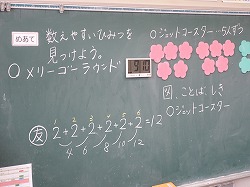 めあて
数えやすいひみつを
見つけよう。
○メリーゴーラウンド
友
1 2 3 4 5 6
2+2+2+2+2+2=12
4 6 8 10 12
○ジェットコースター…5人ずつ
図、ことば、しき
○ジェットコースター